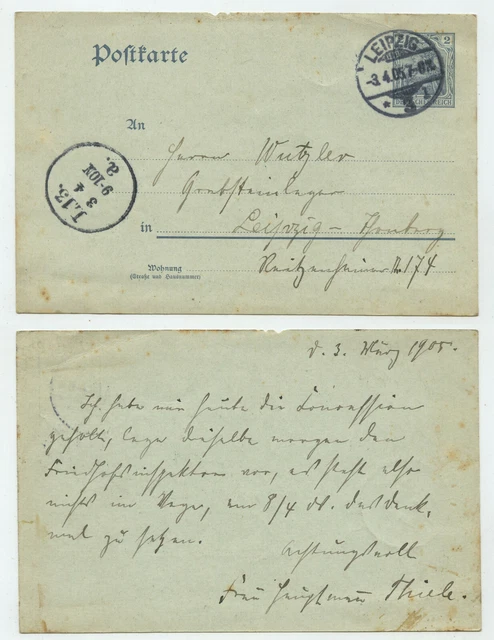 Postkarte
2
LEIPZIG
3.4.05.7-8N.
* 3 I
DEUTSCHES REICH
An
Herrn Wutzler
Grabsteinlager
in Leipzig - Thonberg
Wohnung
(Straße und Hausnummer)
Reitzenhainer No 174
L.13.
3
4
9-10N
a.
d. 3. März 1905.
Ich habe nun heute die Concession
geholt, lege dieselbe morgen dem
Friedhofsinspektor vor, es steht also
nichts im Wege, am 8/4 ds. das Denk-
mal zu setzen.
Achtungsvoll
Frau Hauptmann Thiele.